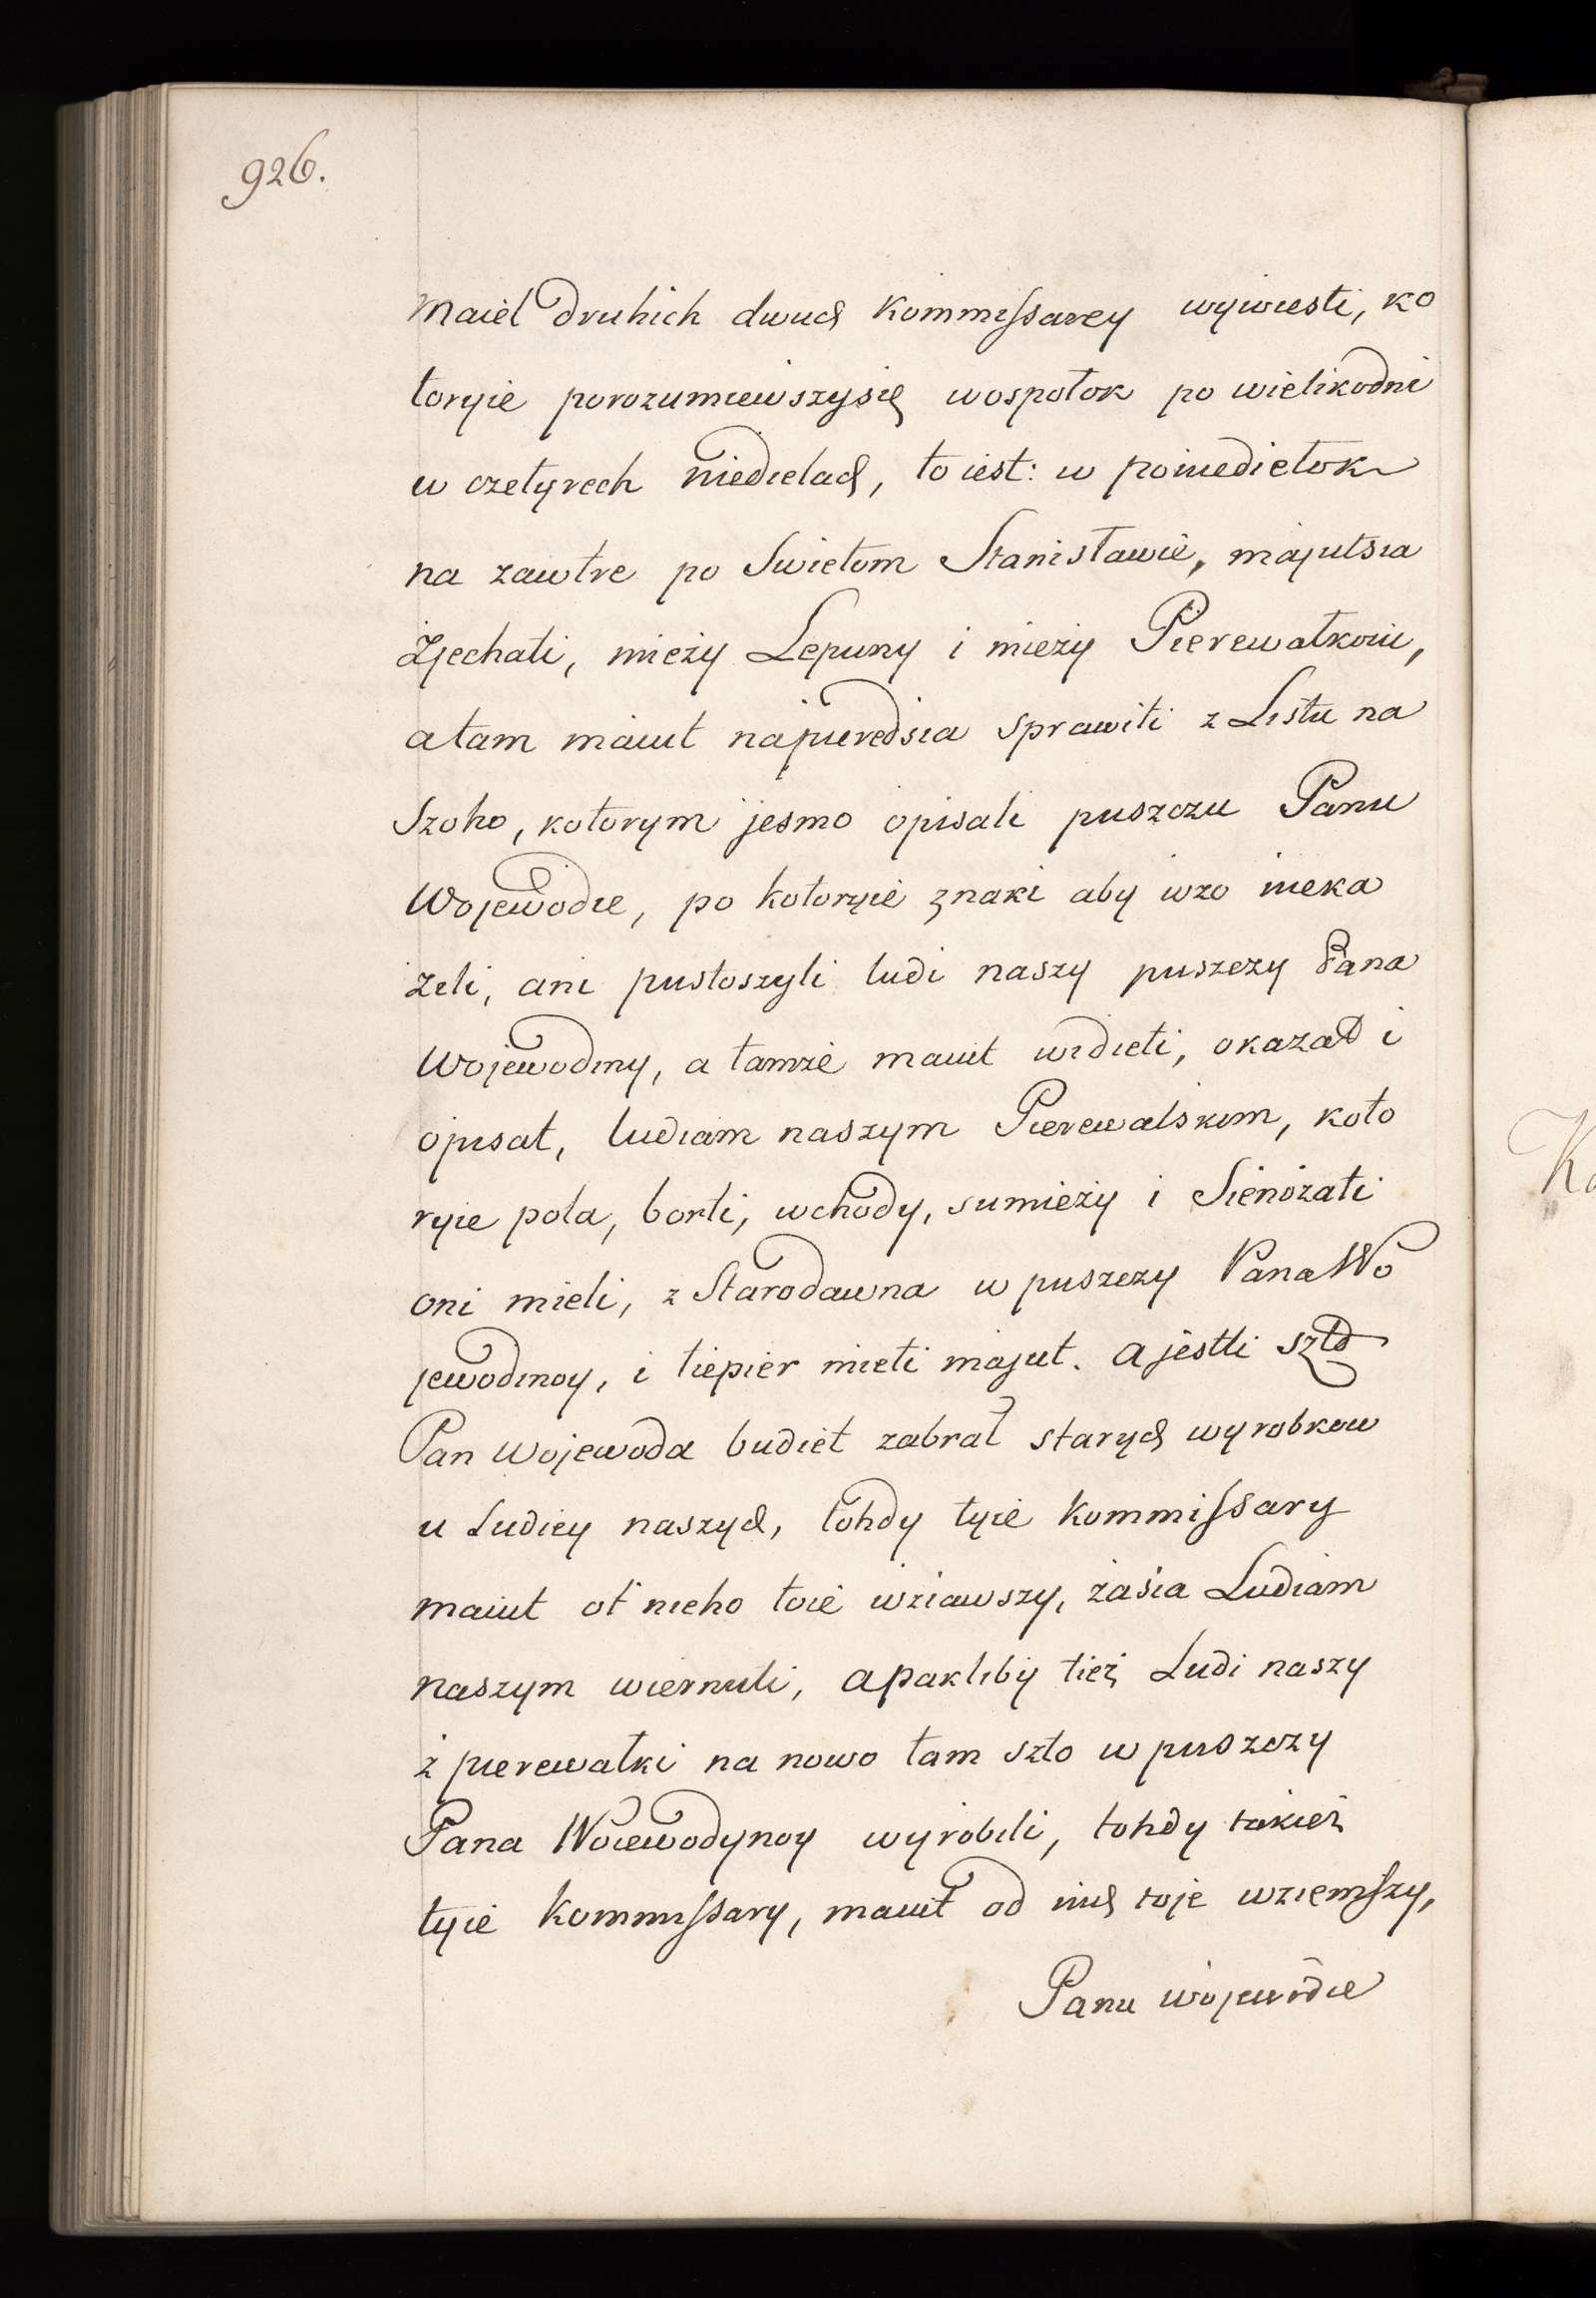 926.
maiet druhich dwuch Kommissarey wywiesti, ko
toryie porozumiewszysię wospołok po wielikodni
w czetyrech niedielach, to iest: w poniedietok
na zawtre po Swietom Stanisławie, majutsia
zjechati, mieży Lepuny i mieży Pierewałkoiu,
a tam maiut najpieredsia sprawiti z Listu na
Szoho, kotorym jesmo opisali puszczu Panu
Wojewodie, po kotoryie znaki aby wżo nieka
żeli, ani pustoszyli ludi naszy puszczy Pana
Wojewodiny, a tamże maiut widieti, okazat i
opisat, ludiam naszym Pierewalskim, koto
ryie pola, borti, wchody, sumieży i Sienożati
oni mieli, z Starodawna w puszczy Pana Wo
jewodinoy, i tiepier mieti majut. a jestli szto
Pan Wojewoda budiet zabrał starych wyrobkow
u Ludiey naszych, tohdy tyie Kommissary
maiut ot nieho toie wziawszy, zasia Ludiam
naszym wiernuti, a pakliby tież Ludi naszy
z pierewałki na nowo tam szto w puszczy
Pana Woiewodynoy wyrobili, tohdy takież
tyie Kommissary, maiut od nich toje wziemszy,
Panu wojewodie